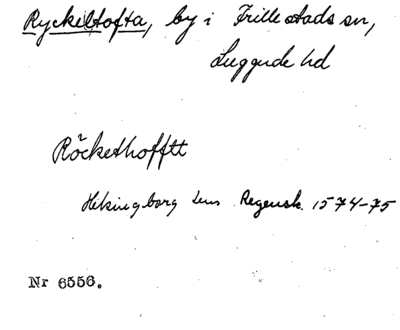 Ryckeltofta, by i Frillestads sn,
Luggude hd
Röckethofftt
Helsingborg läns Regensk. 1574-75
Nr 6556.